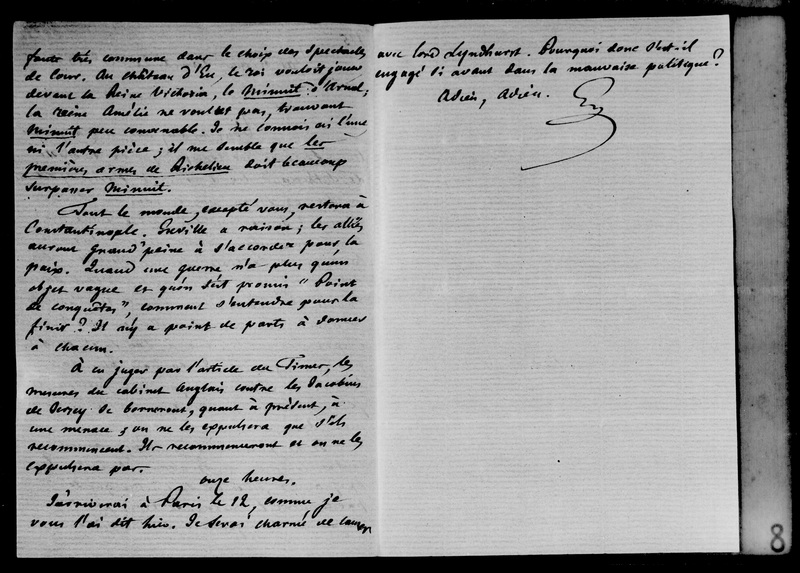 faute très commune dans le choix des spectacles
de Cour. Au château d'Eu, le roi vouloit jouer
devant la Reine Victoria, le Minuit d'Arnal;
la reine Amélie ne voulut pas, trouvant
Minuit peu convenable. Je ne connois ni l'une
ni l'autre pièce; il me semble que les
premières armes de Richelieu doit beaucoup
surpasser Minuit.
Tout le monde, excepté vous, restera à
Constantinople. Greville a raison; les alliés
auront grand'peine à s'accorder pour la
paix. Quand une guerre n'a plus qu'un
objet vague et qu'on s'est promis "Point
de conquêtes", comment s'entendre pour la
finir? Il n'y a point de parts à donner
à chacun.
À en juger par l'article du Times, les
mesures du cabinet Anglais contre les Jacobins
de Jersey se borneront, quant à présent, à
une menace; on ne les expulsera que s'ils
recommencent. Ils recommenceront et on ne les
expulsera pas.
onze heures.
J'arriverai à Paris le 12, comme je
vous l'ai dit hier. Je serai charmé de causer
avec lord Lyndhurst. Pourquoi donc s'est-il
engagé si avant dans la mauvaise politique?
Adieu, Adieu.
8